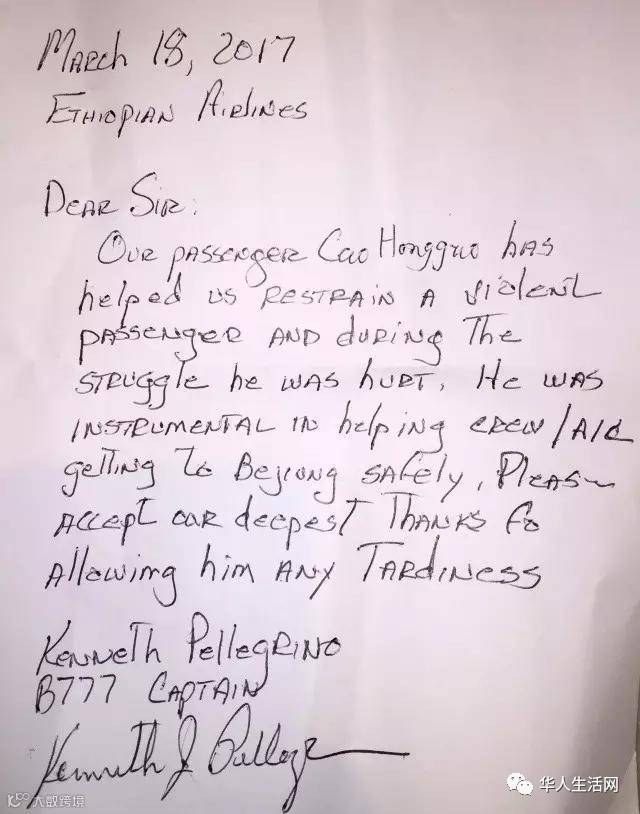 March 18, 2017
Ethiopian Airlines
Dear Sir:
Our passenger Cao Hongguo has
helped us restrain a violent
passenger and during the
struggle he was hurt. He was
instrumental in helping crew/A/C
getting to Bejiung safely. Please
accept our deepest thanks fo
allowing him any tardiness
Kenneth Pellegrino
B777 Captain
Kenneth J Pellegr
华人生活网
K100 大数跨境